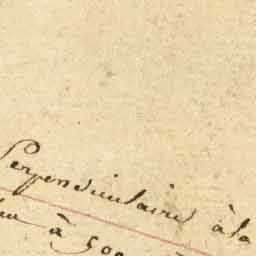 Perpendiculaire à la
à 500